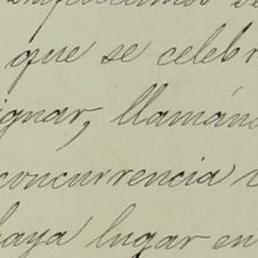 que se celebr
ignar, llamánd
concurrencia
haya lugar en